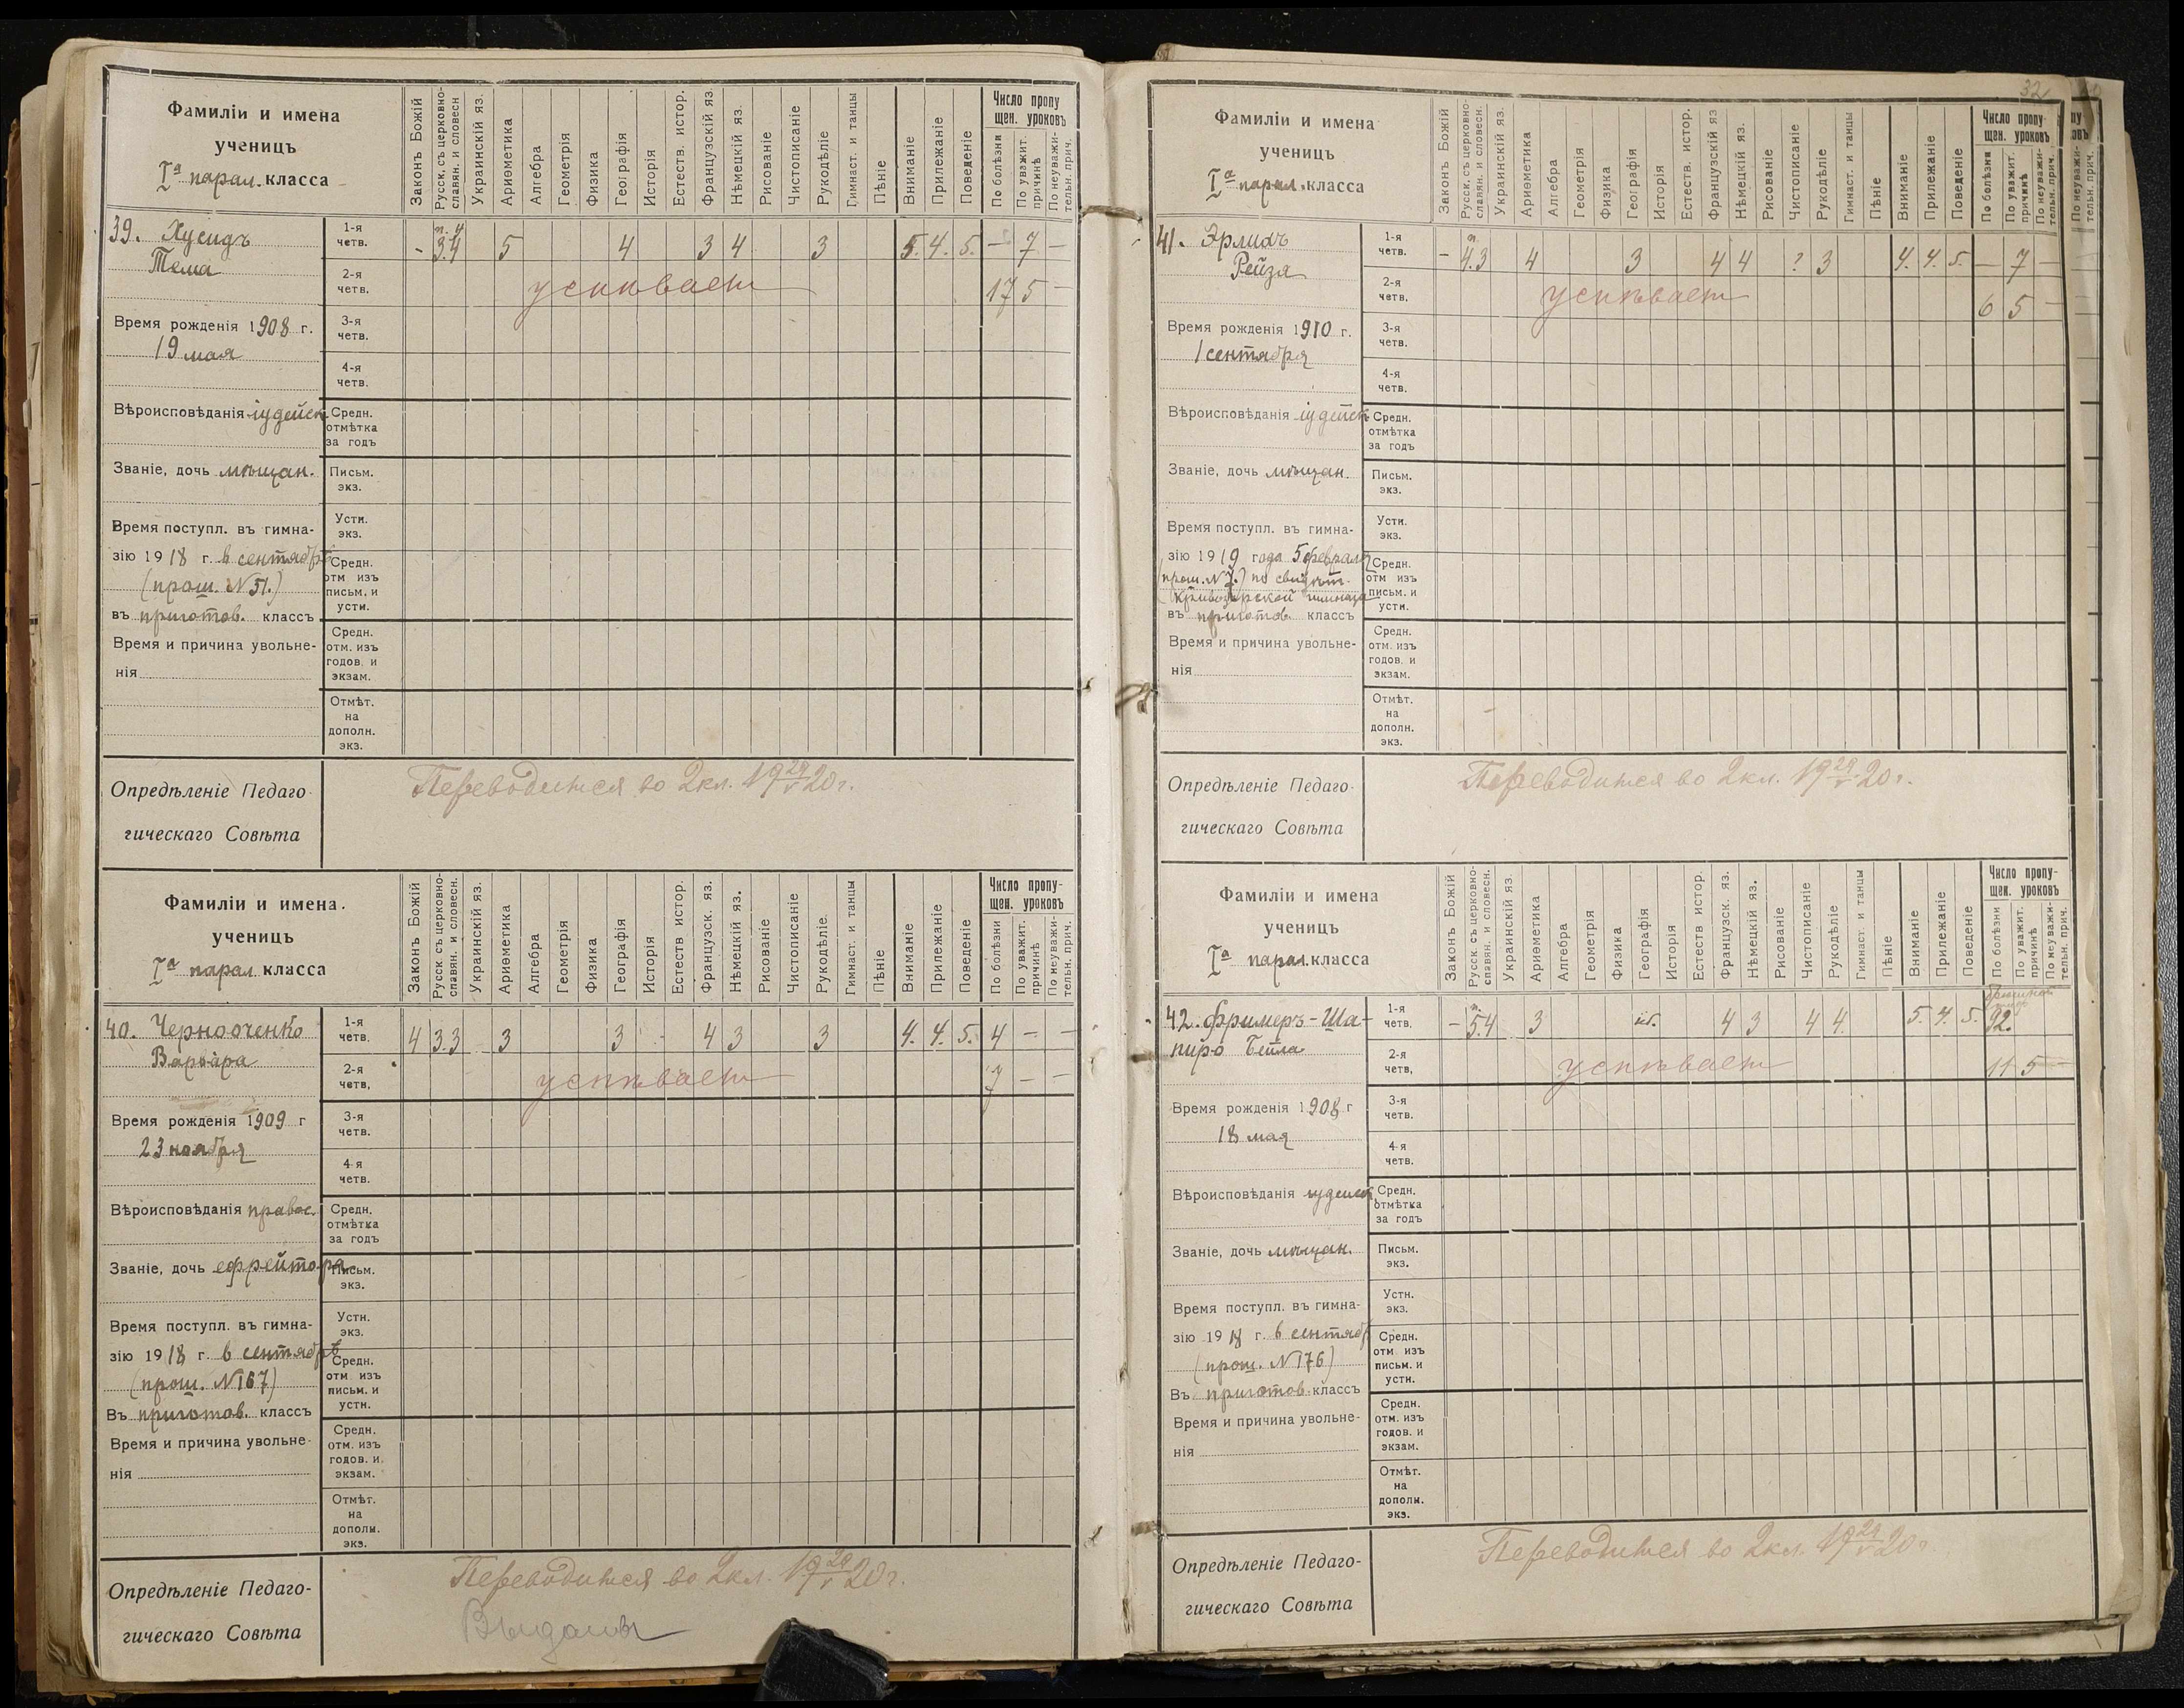 Фамиліи и имена
ученицъ
Iа парал. класса
Законъ Божій
Русск. съ церковно-
славян. и словесн
Украинскій яз.
Ариѳметика
Алгебра
Геометрія
Физика
Географія
Исторія
Естеств. истор.
Французскій яз
Нѣмецкій яз.
Рисованіе
Чистописаніе
Рукодѣліе
Гимнаст. и танцы
Пѣніе
Вниманіе
Прилежаніе
Поведеніе
Число пропу
щен. уроковъ
По болѣзни
По уважит.
причинѣ
По неуважи-
тельн. прич.
39. Хусидъ
Тема
1-я
четв.
- 3.4 5 4 3 4 3 5. 4. 5. - 7 -
2-я
четв.
успѣваетъ
17 5 -
Время рожденія 1908 г.
19 мая
3-я
четв.
4-я
четв.
Вѣроисповѣданія іудейск.
Средн.
отмѣтка
за годъ
Званіе, дочь мѣщан.
Письм.
экз.
Время поступл. въ гимна-
зію 1918 г. в сентябрѣ
(прош. N 51.)
въ приготов. классъ
Устн.
экз.
Средн.
отм изъ
письм. и
устн.
Время и причина увольне-
нія
Средн.
отм. изъ
годов. и
экзам.
Отмѣт.
на
дополн.
экз.
Опредѣленіе Педаго-
гическаго Совѣта
Переводится во 2 кл. 19 29/V 20 г.
Фамиліи и имена.
ученицъ
Iа парал класса
Законъ Божій
Русск съ церковно-
славян. и словесн.
Украинскій яз.
Ариѳметика
Алгебра
Геометрія
Физика
Географія
Исторія
Естеств истор.
Французск. яз.
Нѣмецкій яз.
Рисованіе
Чистописаніе
Рукодѣліе.
Гимнаст. и танцы
Пѣніе
Вниманіе
Прилежаніе
Поведеніе
Число пропу-
щен. уроковъ
По болѣзни
По уважит.
причинѣ
По неуважи-
тельн. прич.
40.
Варвара
1-я
четв.
4 3.3 3 3 4 3 3 4. 4. 5. 4 - -
2-я
четв,
успѣваетъ
7 - -
Время рожденія 1909 г
23 ноября
3-я
четв.
4-я
четв.
Вѣроисповѣданія правос.
Средн.
отмѣтка
за годъ
Званіе, дочь ефрейтора
Письм.
экз.
Время поступл. въ гимна-
зію 1918 г. в сентябрѣ
(прош. N 167)
Въ приготов. классъ
Устн.
экз.
Средн.
отм изъ
письм. и
устн.
Время и причина увольне-
нія
Средн.
отм. изъ
годов. и
экзам.
Отмѣт.
на
дополн.
экз.
Опредѣленіе Педаго-
гическаго Совѣта
Переводится во 2 кл. 19 29/V 20 г.
32
Фамиліи и имена
ученицъ
Iа парал. класса
Законъ Божій
Русск. съ церковно-
славян. и словесн.
Украинскій яз.
Ариѳметика
Алгебра
Геометрія
Физика
Географія
Исторія
Естеств. истор.
Французскій яз
Нѣмецкій яз.
Рисованіе
Чистописаніе
Рукодѣліе
Гимнаст. и танцы
Пѣніе
Вниманіе
Прилежаніе
Поведеніе
Число пропу
щен. уроковъ
По болѣзни
По уважит.
причинѣ
По неуважи-
тельн. прич.
41. Эрлихъ
Рейзя
1-я
четв.
- 4.3 4 3 4 4 ? 3 4. 4. 5. - 7 -
2-я
четв.
успѣваетъ
6 5 -
Время рожденія 1910 г.
1 сентября
3-я
четв.
4-я
четв.
Вѣроисповѣданія іудейск.
Средн.
отмѣтка
за годъ
Званіе, дочь мѣщан.
Письм.
экз.
Время поступл. въ гимна-
зію 1919 года 5 февраля
(прош. N 7.) по свидѣт.
въ приготов. классъ
Устн.
экз.
Средн.
отм изъ
письм. и
устн.
Время и причина увольне-
нія
Средн.
отм. изъ
годов. и
экзам.
Отмѣт.
на
дополн.
экз.
Опредѣленіе Педаго-
гическаго Совѣта
Переводится во 2 кл. 19 29/V 20 г.
Фамиліи и имена
ученицъ
Iа парал. класса
Законъ Божій
Русск съ церковно-
славян. и словесн.
Украинскій яз.
Ариѳметика
Алгебра
Геометрія
Физика
Географія
Исторія
Естеств истор.
Французск. яз.
Нѣмецкій яз.
Рисованіе
Чистописаніе
Рукодѣліе
Гимнаст. и танцы
Пѣніе
Вниманіе
Прилежаніе
Поведеніе
Число пропу-
щен. уроковъ
По болѣзни
По уважит.
причинѣ
По неуважи-
тельн. прич.
42. Фримеръ-Ша-
пиро Бейла
1-я
четв.
- 5.4 3 4 3 4 4. 5. 4. 5. 92.
2-я
четв,
успѣваетъ
11 5 -
Время рожденія 1908 г
18 мая
3-я
четв.
4 я
четв.
Вѣроисповѣданія іудейск.
Средн.
отмѣтка
за годъ
Званіе, дочь мѣщан.
Письм.
экз.
Время поступл. въ гимна-
зію 1918 г. в сентябр
(прош. N 176)
Въ приготов. классъ
Устн.
экз.
Средн.
отм изъ
письм. и
устн.
Время и причина увольне-
нія
Средн.
отм. изъ
годов. и
экзам.
Отмѣт.
на
дополн.
экз.
Опредѣленіе Педаго-
гическаго Совѣта
Переводится во 2 кл. 19 29/V 20 г.